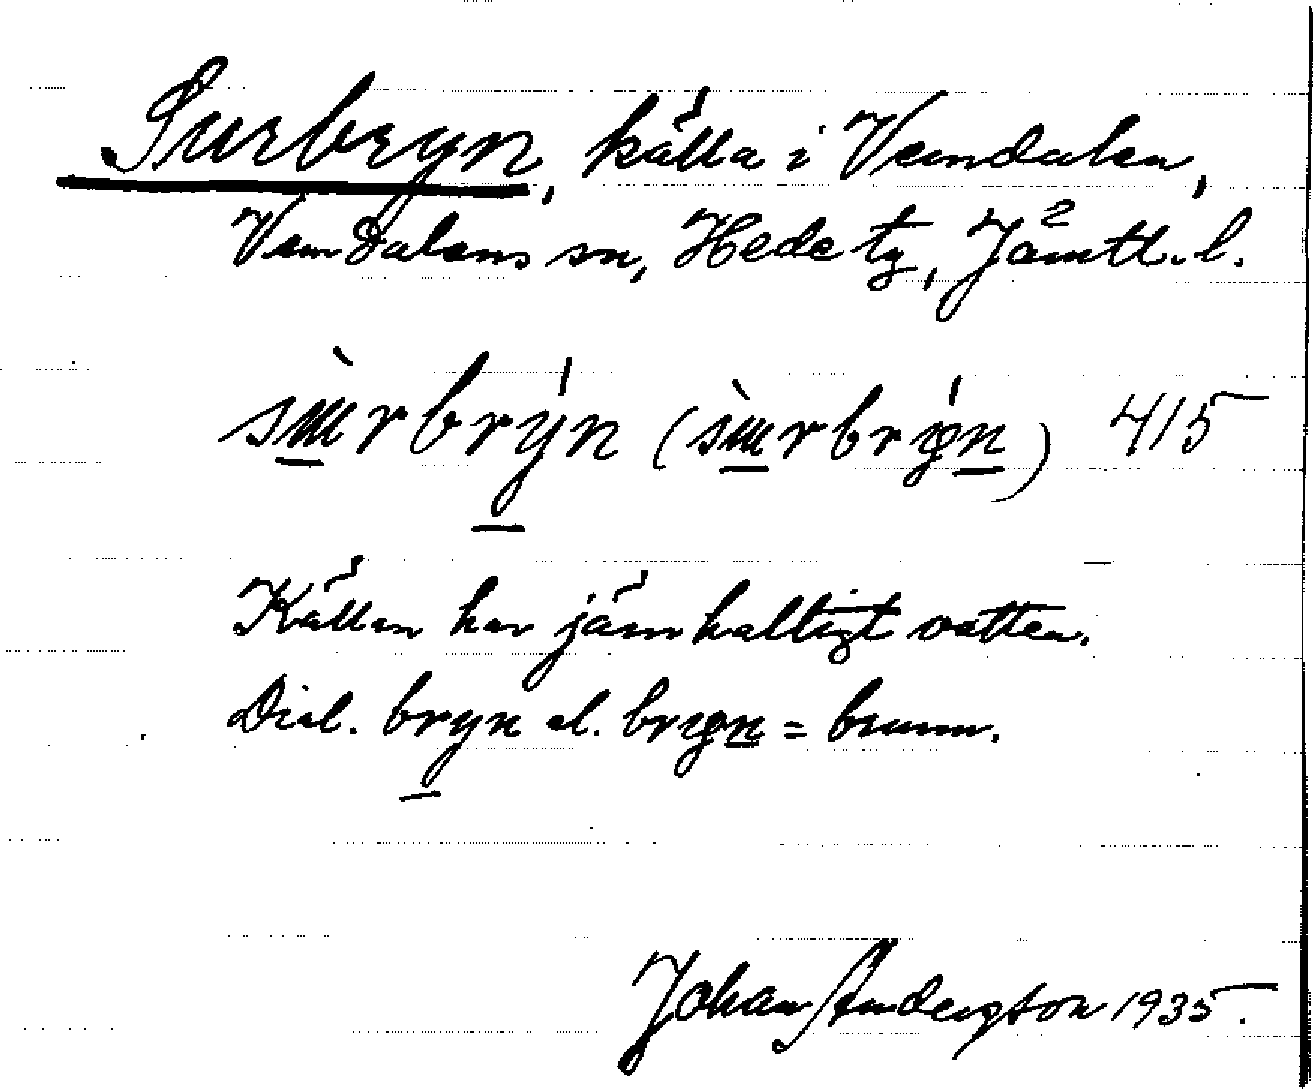 Surbryn, källa i Vemdalen,
Vemdalens sn, Hede tg, Jämtl. l.
surbryn (surbryn) 415
Källan har järnhaltigt vatten.
Dial. bryn el. bryn = brunn.
Johan Anderson 1935.